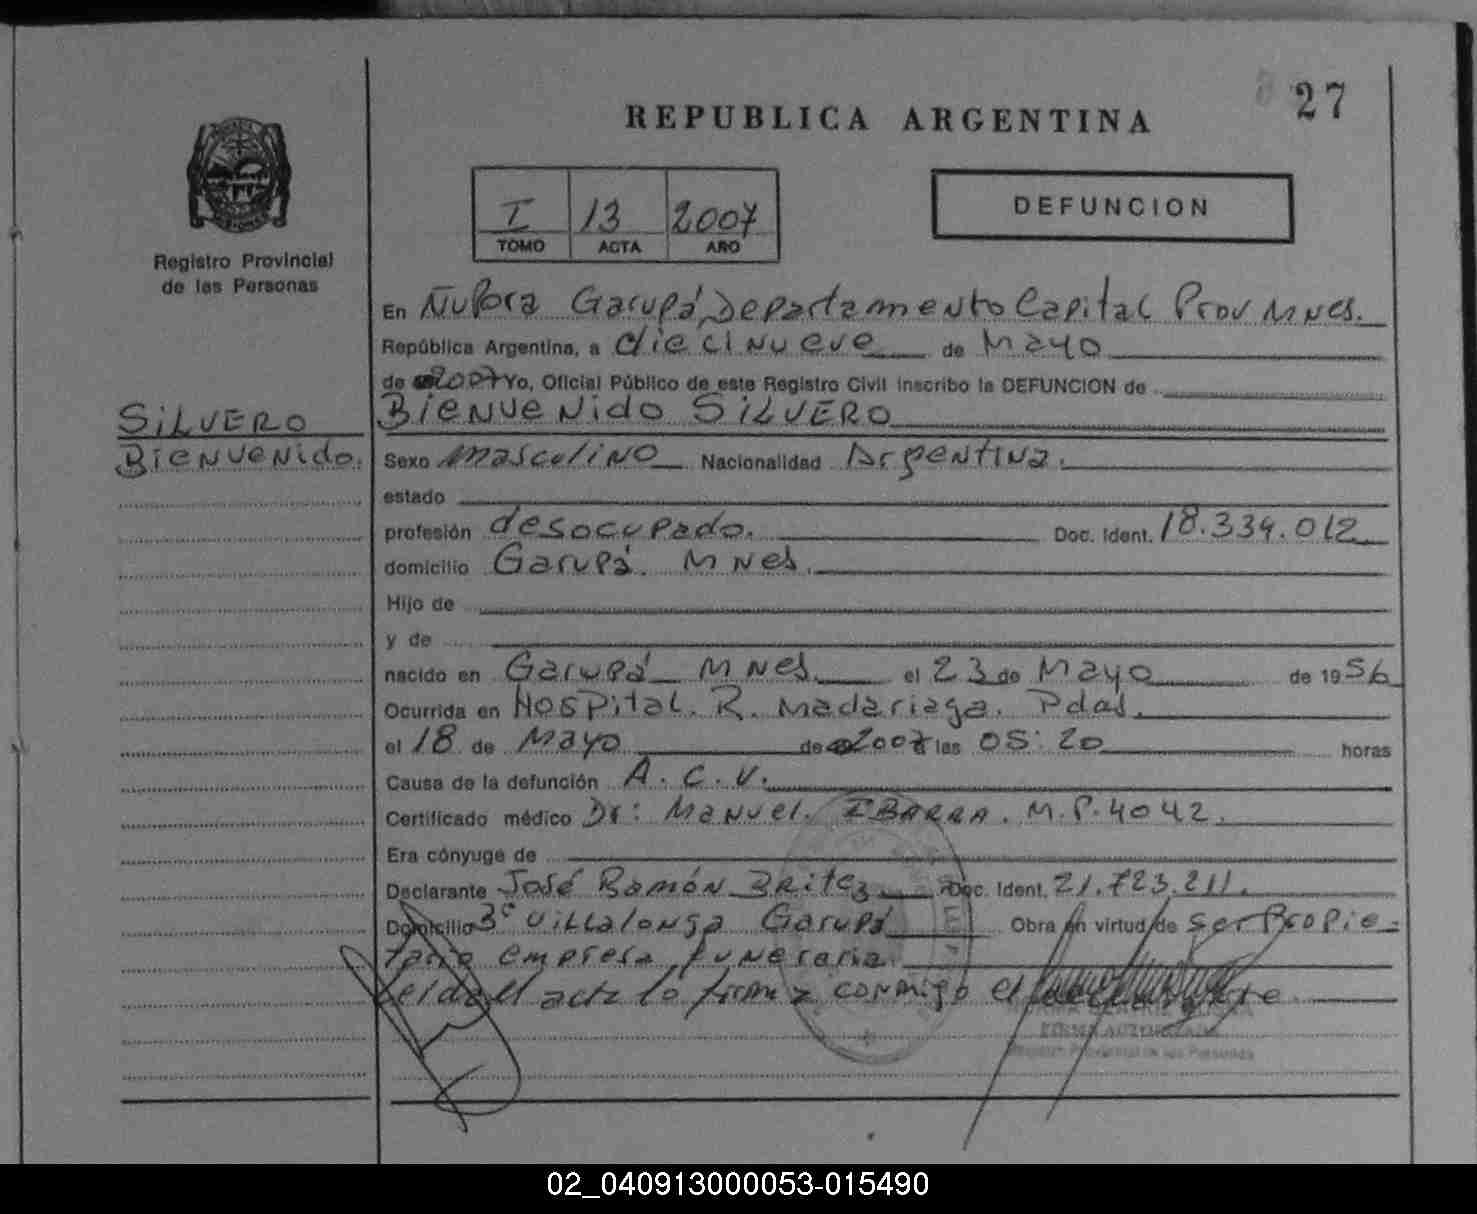 27
REPUBLICA ARGENTINA
I 13 2007
TOMO ACTA AÑO
DEFUNCION
Registro Provincial
de las Personas
En ÑuPora Garupá, Departamento Capital Prov Mnes.
República Argentina, a diecinueve de Mayo
de 2007 Yo, Oficial Público de este Registro Civil inscribo la DEFUNCION de
BIENVENIDO SILVERO
SILVERO
BIENVENIDO.
Sexo masculino Nacionalidad Argentina.
estado
profesión desocupado. Doc. Ident. 18.339.012
domicilio Garupá. Mnes.
Hijo de
y de
nacido en Garupá Mnes. el 23 de Mayo de 1956
Ocurrida en Hospital. R. Madariaga. Pdas.
el 18 de Mayo de 2007 a las 05:20 horas
Causa de la defunción A.C.V.
Certificado médico Dr: Manuel. IBARRA. M.P.4042.
Era cónyuge de
Declarante José Ramón Britez Doc. Ident. 21.723.211.
Domicilio 3º Villalonga Garupá Obra en virtud de ser Propie-
tario empresa funeraria.
Leída el acta lo firma conmigo el declarante.
FIRMA AUTORIZADA
Registro Provincial de las Personas
02_040913000053-015490